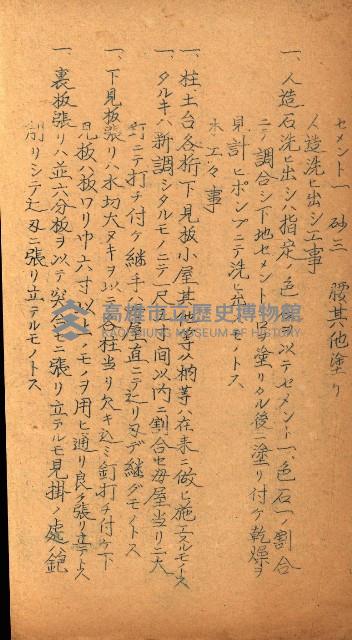 セメント一　砂三　腰其他塗リ
人造洗ヒ出シ工事
一、人造石洗ヒ出シハ指定ノ色ヲ以テセメント一、色石一ノ割合
ニテ調合シ下地セメント塗リタル後ニ塗リ付ケ乾燥ヲ
見計ヒポンプニテ洗ヒ モノトス、
木工々事
一、柱土台各桁下見板小屋其他等ハ柄等ハ在来ニ倣ヒ施エスルモノトス
一、タルキハ新調シタルモノニテ一尺五寸間以内ニ割合セ毎屋当リニ大
釘ニテ打チ付ケ継手ハ 屋直ニテ刄デ継グモノトス
一、下見板張リハ水切大ヌキヲ以 各柱当リ欠キ込ミ釘打チ付ケ下
見板ハ板ワリ巾六寸以上ノモノヲ用ヒ通リ良ク張リ立テトス
一、裏板張リハ並六分板ヲ以テ突 ニ張リ立テルモ見掛ノ処ハ鉋
削リシテ 刄ニ張リ立テルモノトス
高雄市立歷史博物館
KAOHSIUNG MUSEUM OF HISTORY